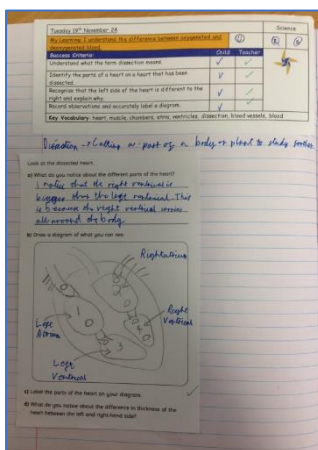 Tuesday 19th November 24
Science
My Learning: I understand the difference between oxygenated and deoxygenated blood.
Success Criteria:
Child
Teacher
Understand what the term dissection means.
Identify the parts of a heart on a heart that has been dissected.
Recognise that the left side of the heart is different to the right and explain why.
Record observations and accurately label a diagram.
Key Vocabulary: heart, muscle, chambers, atria, ventricles, dissection, blood vessels, blood
a body or plant to study
Look at the dissected heart.
a) What do you notice about the different parts of the heart?
I notice that the right ventrical is
bigger than the left ventrical. This
is because the right ventrical
all around the body
b) Draw a diagram of what you can see.
Right atrium
Right
Ventrical
Left
Atrium
Left
Ventrical
c) Label the parts of the heart on your diagram.
d) What do you notice about the difference in thickness of the
heart between the left and right-hand side?